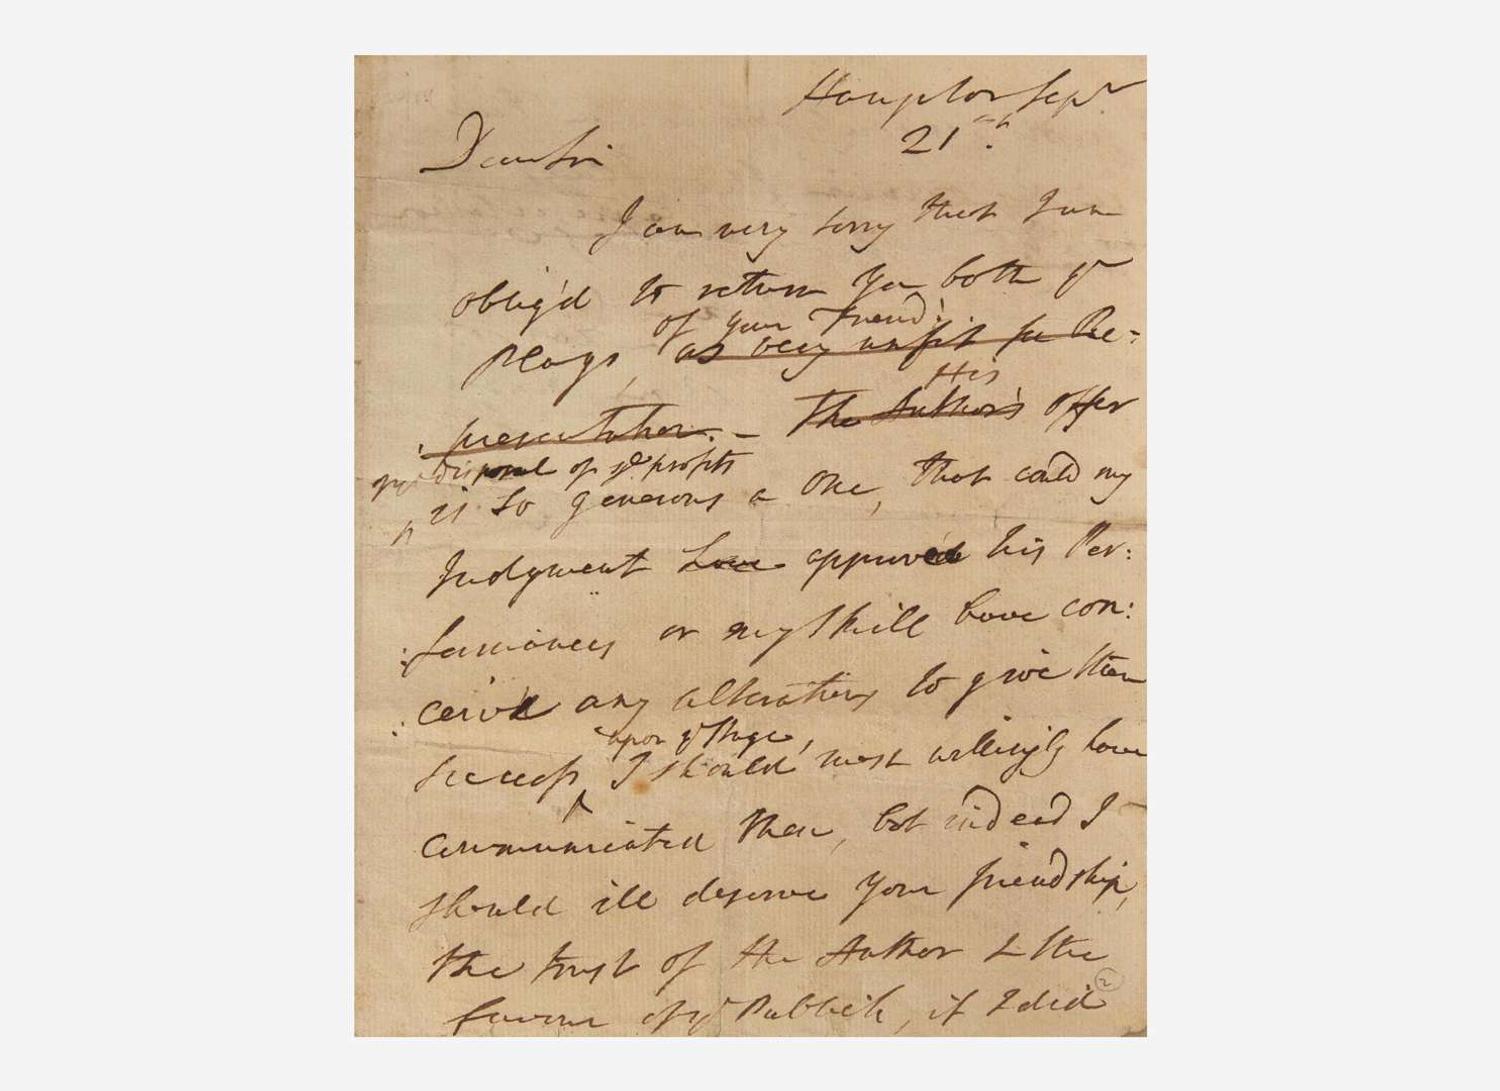 Hampton Sepr
21st.
Dear Sir
I am very sorry that I am
oblig'd to return You both ye
of your Friend's
Plays, as very unfit for Re-
His
presentation. - The Author's offer
disposal of ye profits
is so generous a One, that could my
Judgment have approv'd his Per:
:formances or my Skill have con:
:ceiv'd any alterations to give them
upon ye Stage,
success I should most willingly have
communicated them, but indeed I
should ill deserve Your friendship,
the trust of the Author & the
favour of ye Publick, if I did
2